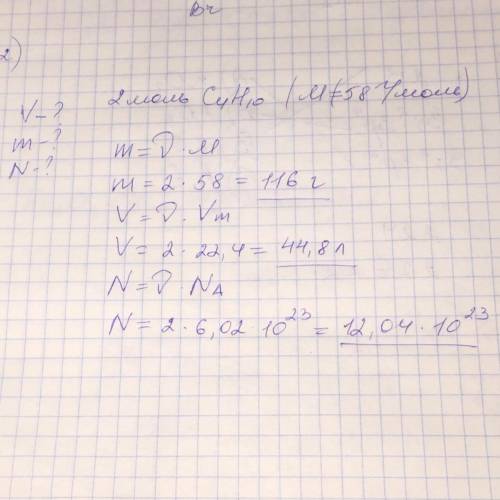 Br
2)
2 моль C₄H₁₀ (M=58 г/моль)
V-?
m-?
N-?
m = ν · M
m = 2 · 58 = 116 г
V = ν · Vm
V = 2 · 22,4 = 44,8 л
N = ν · NA
N = 2 · 6,02 · 10²³ = 12,04 · 10²³